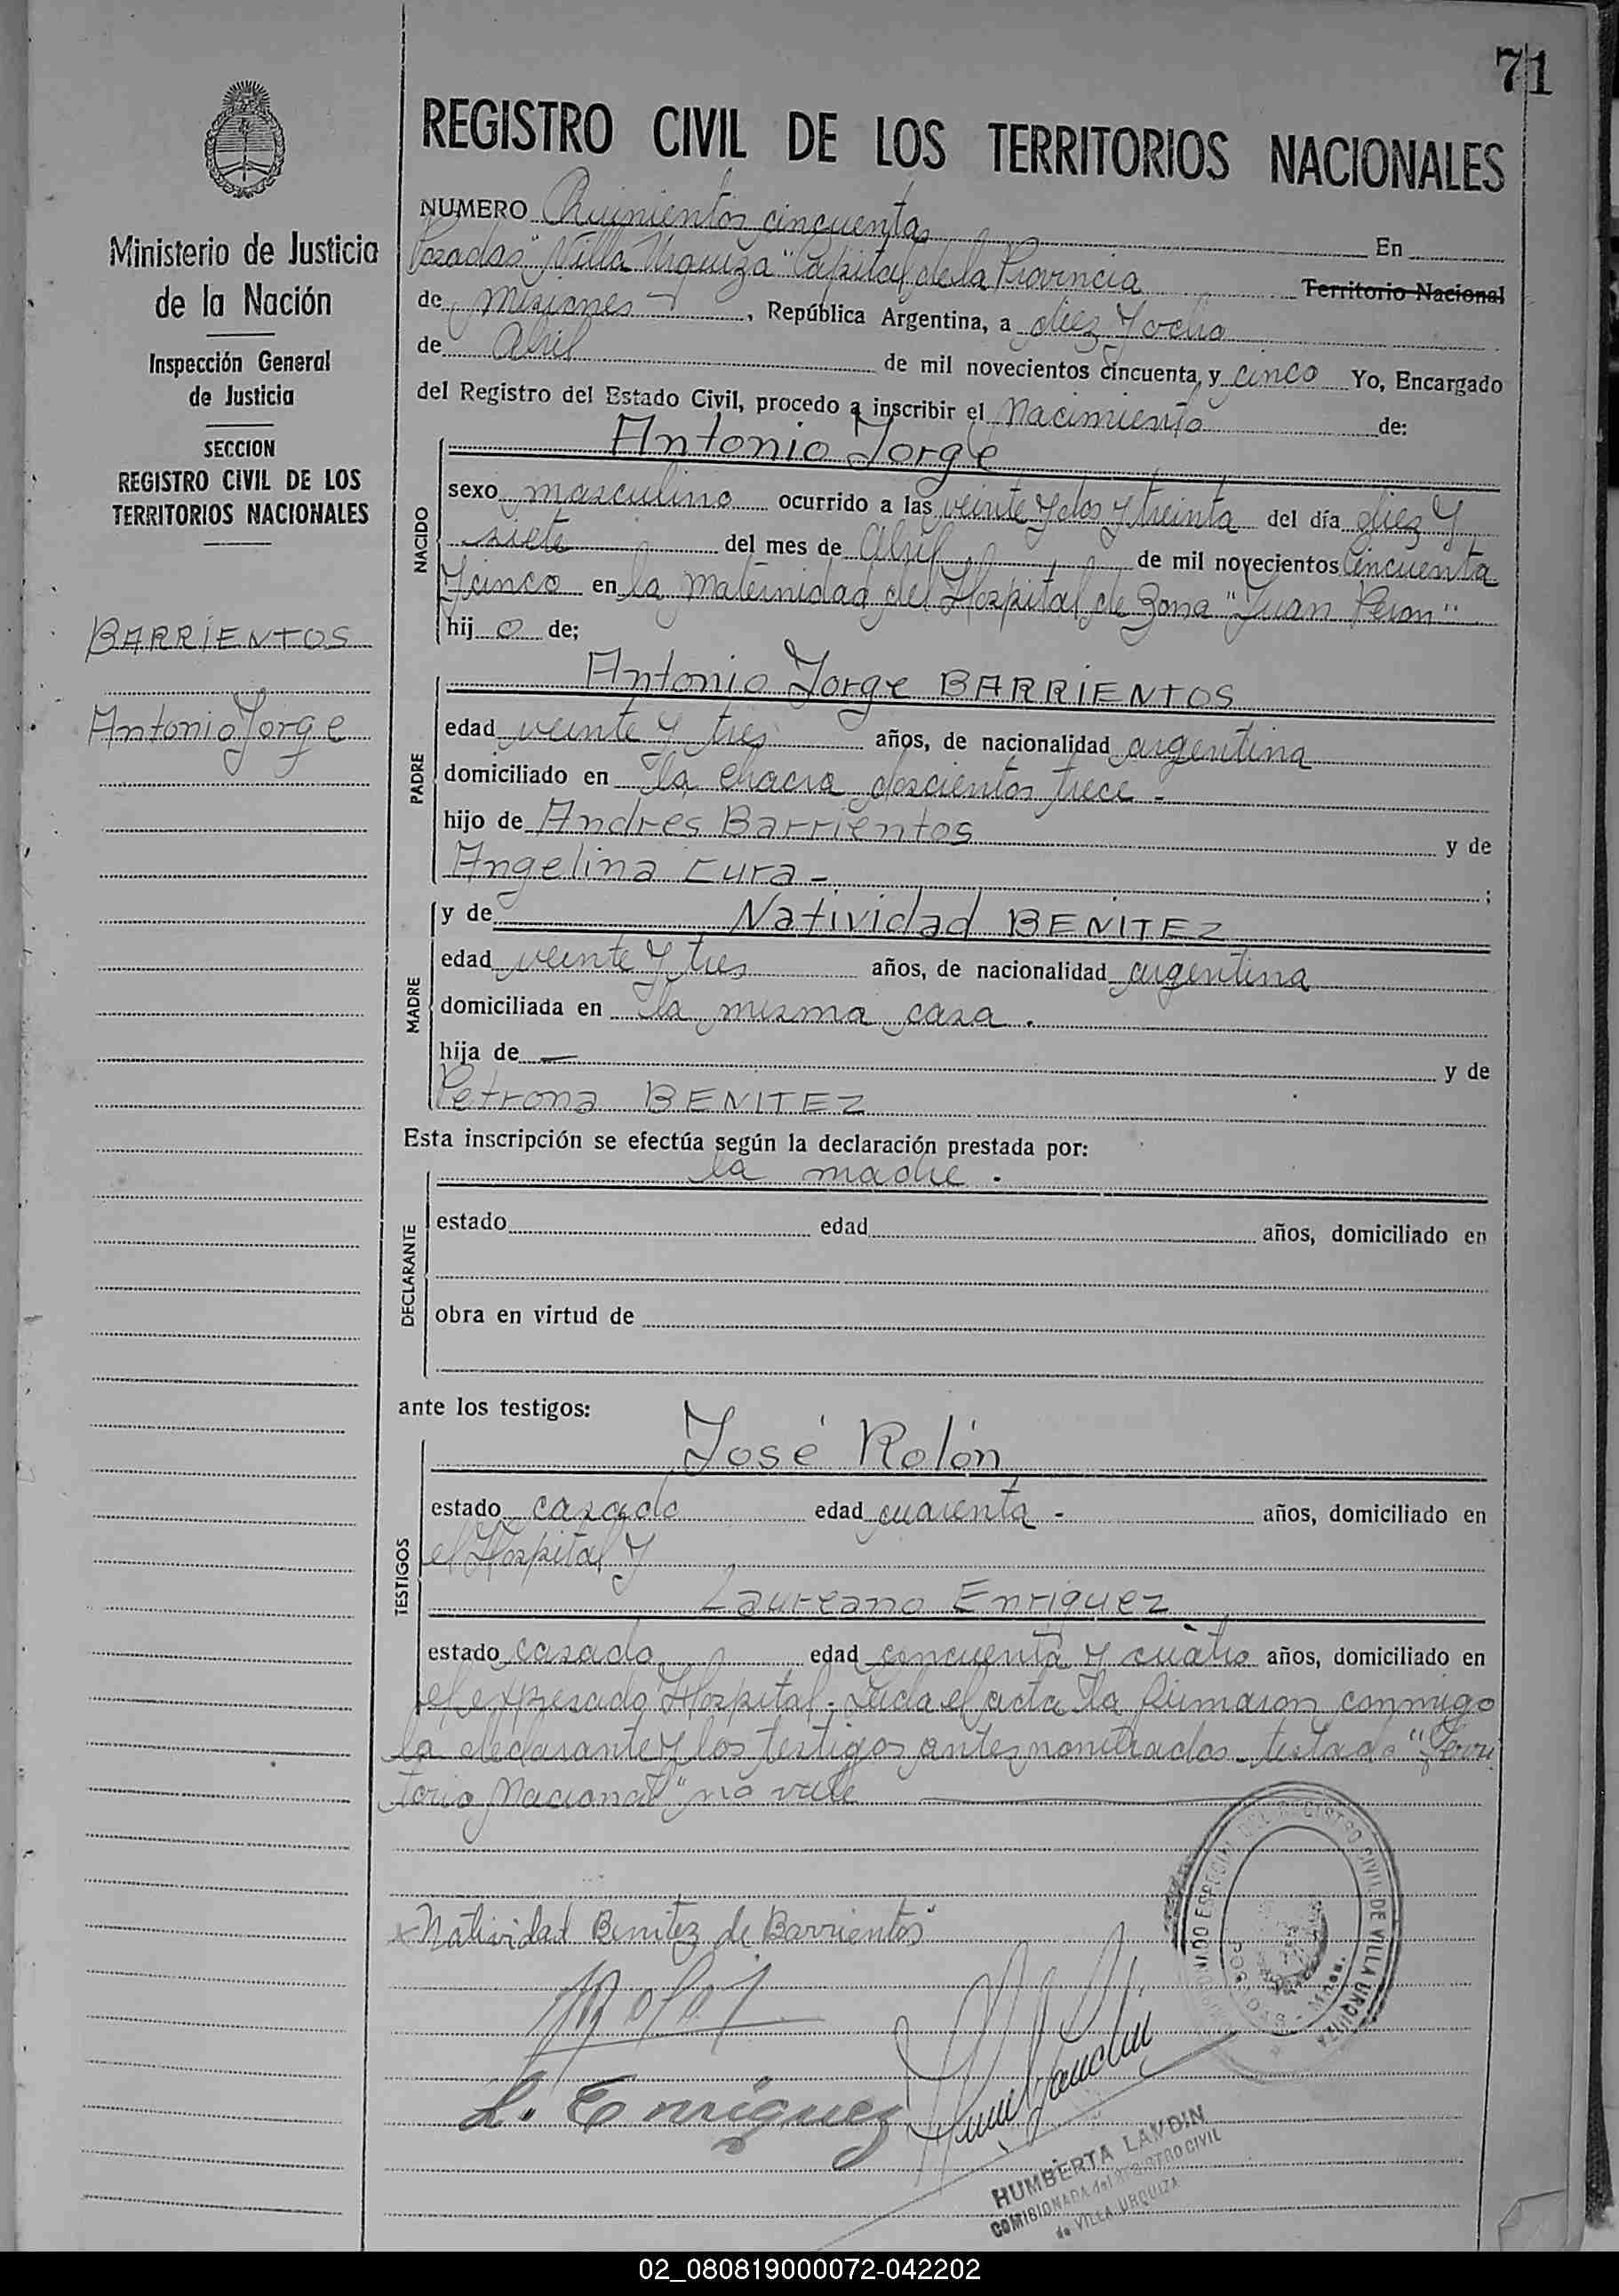 71
REGISTRO CIVIL DE LOS TERRITORIOS NACIONALES
Ministerio de Justicia
de la Nación
Inspección General
de Justicia
SECCION
REGISTRO CIVIL DE LOS
TERRITORIOS NACIONALES
BARRIENTOS
Antonio Jorge
NUMERO Quinientos cincuenta En
Posadas "Villa Urquiza" Capital de la Provincia Territorio Nacional
de Misiones, República Argentina, a diez y ocho
de Abril de mil novecientos cincuenta y cinco Yo, Encargado
del Registro del Estado Civil, procedo a inscribir el Nacimiento de:
NACIDO
Antonio Jorge
sexo masculino ocurrido a las veinte y dos y treinta del día diez y
siete del mes de Abril de mil novecientos cincuenta
y cinco en la maternidad del Hospital de Zona "Juan Peron"
hij o de;
PADRE
Antonio Jorge BARRIENTOS
edad veinte y tres años, de nacionalidad argentina
domiciliado en la chacra doscientos trece -
hijo de Andres Barrientos y de
Angelina Cura - ;
MADRE
y de Natividad BENITEZ
edad veinte y tres años, de nacionalidad argentina
domiciliada en la misma casa .
hija de — y de
Petrona BENITEZ
Esta inscripción se efectúa según la declaración prestada por:
DECLARANTE
la madre .
estado edad años, domiciliado en
obra en virtud de
ante los testigos:
TESTIGOS
José Rolón
estado casado edad cuarenta - años, domiciliado en
el Hospital y
Laureano Enriquez
estado casado edad cincuenta y cuatro años, domiciliado en
el expresado Hospital. Leida el acta la firmaron conmigo
la declarante y los testigos antes nombrados - testado "Terri
torio Nacional" no vale
Natividad Benitez de Barrientos
L. Enriquez
REGISTRO CIVIL DE VILLA URQUIZA
HUMBERTA LANDIN
COMISIONADA del REGISTRO CIVIL
de VILLA URQUIZA
02_080819000072-042202